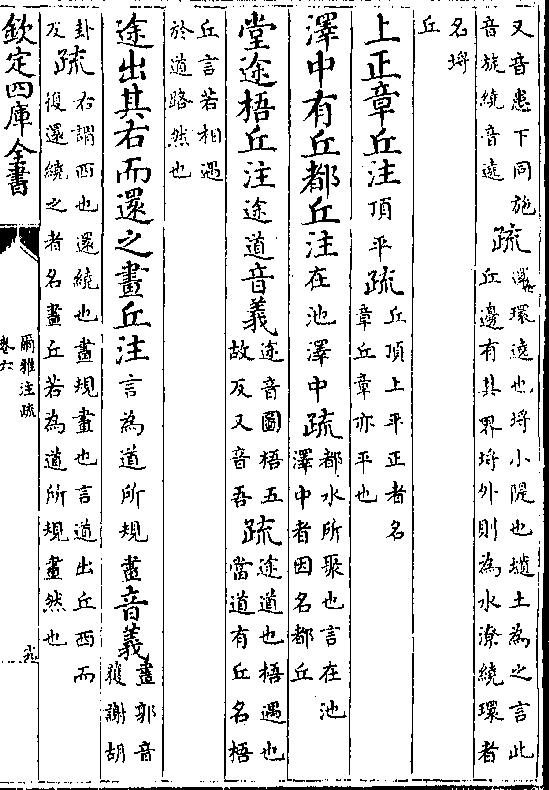 又音患下同施
音旋繞音遶
疏
還環遶也埒小隄也壝土為之言此
丘邊有其界埒外則為水潦繞環者
名埒
丘
上正章丘注頂平疏
丘頂上平正者名
章丘章亦平也
澤中有丘都丘注在池澤中疏
都水所聚也言在池
澤中者因名都丘
堂途梧丘注途道音義
途音圖梧五
故反又音吾
疏
途道也梧遇也
當道有丘名梧
丘言若相遇
於道路然也
途出其右而還之畫丘注言為道所規畫音義
畫郭音
獲謝胡
卦
反
疏
右謂西也還繞也畫規畫也言道出丘西而
復還繞之者名畫丘若為道所規畫然也
欽定四庫全書
爾雅注疏
卷六